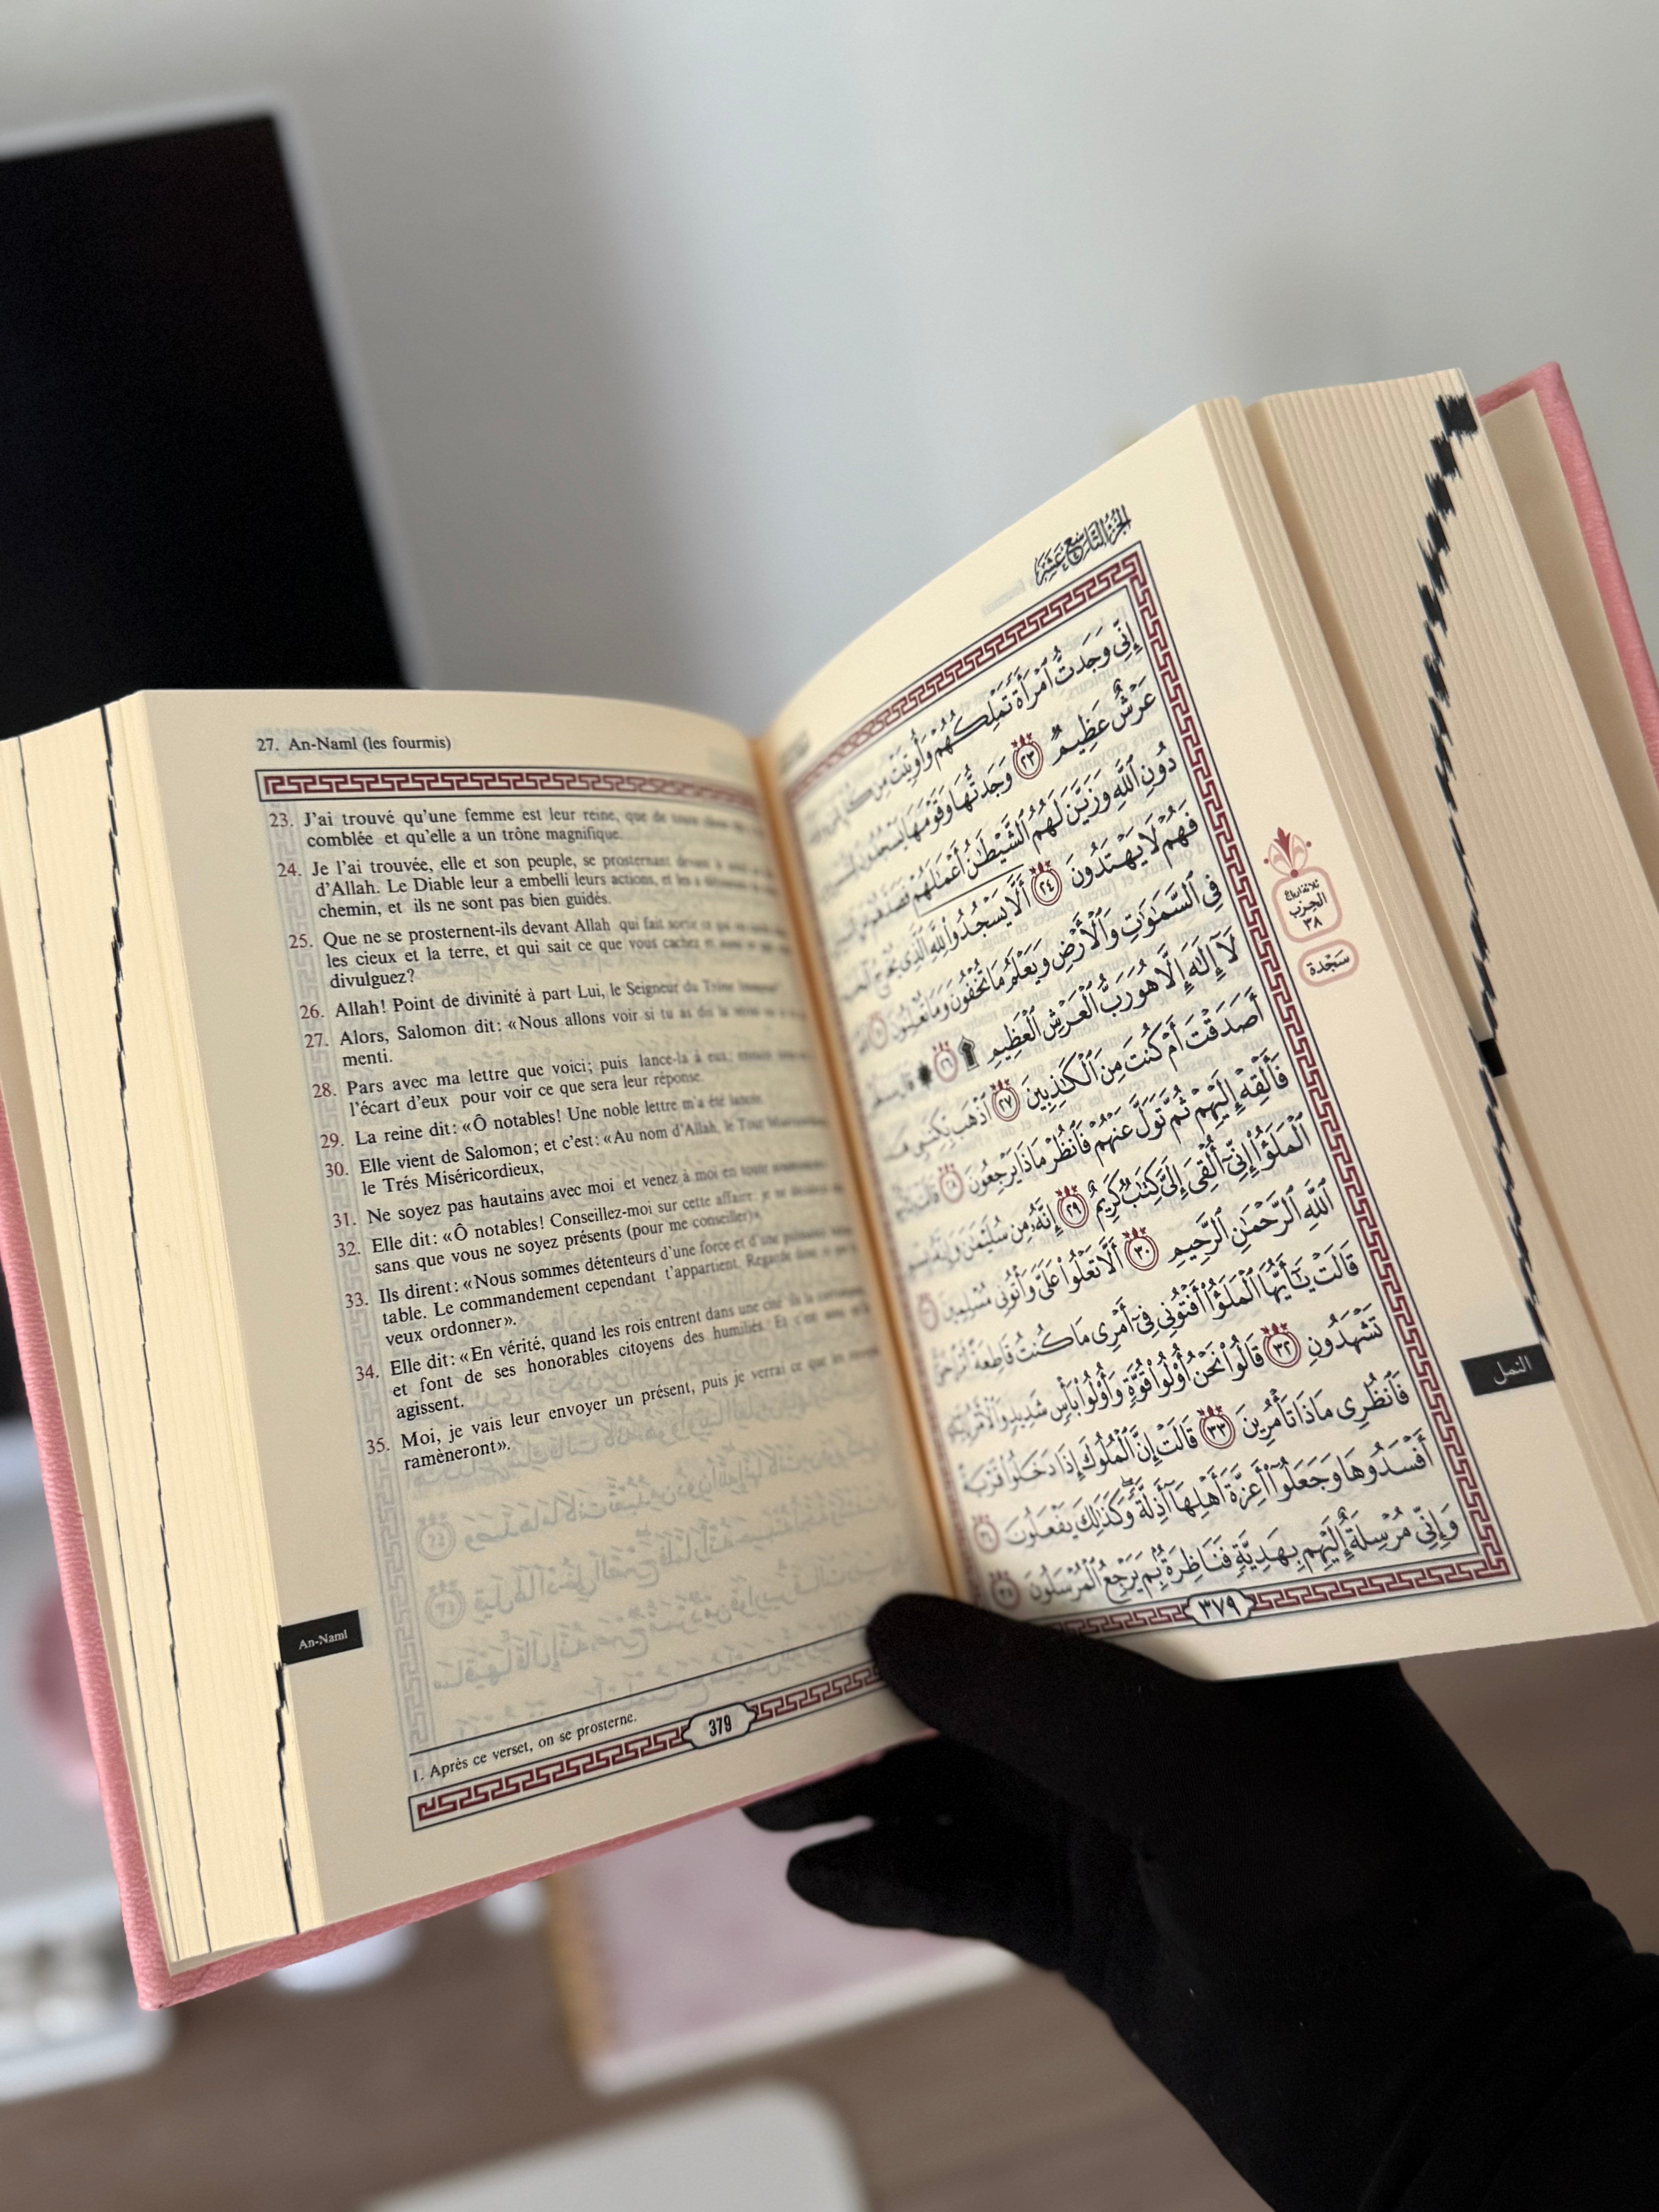 27. An-Naml (les fourmis)
23. J'ai trouvé qu'une femme est leur reine, que de toute
comblée et qu'elle a un trône magnifique.
24. Je l'ai trouvée, elle et son peuple, se prosternant devant
d'Allah. Le Diable leur a embelli leurs actions, et les a
chemin, et ils ne sont pas bien guidés.
25. Que ne se prosternent-ils devant Allah qui fait sortir ce qui
les cieux et la terre, et qui sait ce que vous cachez et aussi
divulguez?
26. Allah! Point de divinité à part Lui, le Seigneur du Trône
27. Alors, Salomon dit: «Nous allons voir si tu as dit la
menti.
28. Pars avec ma lettre que voici; puis lance-la à eux; ensuite
l'écart d'eux pour voir ce que sera leur réponse.
29. La reine dit: «Ô notables! Une noble lettre m'a été lancée.
30. Elle vient de Salomon; et c'est: «Au nom d'Allah, le Tout
le Trés Miséricordieux,
31. Ne soyez pas hautains avec moi et venez à moi en toute
32. Elle dit: «Ô notables! Conseillez-moi sur cette affaire: je ne
sans que vous ne soyez présents (pour me conseiller)».
33. Ils dirent: «Nous sommes détenteurs d'une force et d'une
table. Le commandement cependant t'appartient. Regarde donc
veux ordonner».
34. Elle dit: «En vérité, quand les rois entrent dans une cité ils la
et font de ses honorables citoyens des humiliés. Et c'est
agissent.
35. Moi, je vais leur envoyer un présent, puis je verrai ce que
ramèneront».
An-Naml
1. Après ce verset, on se prosterne.
379
الجزء التاسع عشر
إِنِّي وَجَدتُّ ٱمْرَأَةً تَمْلِكُهُمْ وَأُوتِيَتْ مِن كُلِّ
عَرْشٌ عَظِيمٌ ٢٣ وَجَدتُّهَا وَقَوْمَهَا يَسْجُدُونَ
دُونِ ٱللَّهِ وَزَيَّنَ لَهُمُ ٱلشَّيْطَٰنُ أَعْمَٰلَهُمْ فَصَدَّهُمْ
فَهُمْ لَا يَهْتَدُونَ ٢٤ أَلَّا يَسْجُدُوا۟ لِلَّهِ ٱلَّذِي يُخْرِجُ
فِي ٱلسَّمَٰوَٰتِ وَٱلْأَرْضِ وَيَعْلَمُ مَا تُخْفُونَ وَمَا تُعْلِنُونَ
لَآ إِلَٰهَ إِلَّا هُوَ رَبُّ ٱلْعَرْشِ ٱلْعَظِيمِ ۩ ٢٦ ۞ قَالَ
أَصَدَقْتَ أَمْ كُنتَ مِنَ ٱلْكَٰذِبِينَ ٢٧ ٱذْهَب بِّكِتَٰبِي
فَأَلْقِهْ إِلَيْهِمْ ثُمَّ تَوَلَّ عَنْهُمْ فَٱنظُرْ مَاذَا يَرْجِعُونَ ٢٨ قَالَتْ
ٱلْمَلَؤُا۟ إِنِّيٓ أُلْقِيَ إِلَيَّ كِتَٰبٌ كَرِيمٌ ٢٩ إِنَّهُۥ مِن سُلَيْمَٰنَ وَإِنَّهُۥ
ٱللَّهِ ٱلرَّحْمَٰنِ ٱلرَّحِيمِ ٣٠ أَلَّا تَعْلُوا۟ عَلَيَّ وَأْتُونِي مُسْلِمِينَ
قَالَتْ يَٰٓأَيُّهَا ٱلْمَلَؤُا۟ أَفْتُونِي فِيٓ أَمْرِي مَا كُنتُ قَاطِعَةً أَمْرًا
تَشْهَدُونِ ٣٢ قَالُوا۟ نَحْنُ أُو۟لُوا۟ قُوَّةٍ وَأُو۟لُوا۟ بَأْسٍ شَدِيدٍ وَٱلْأَمْرُ
فَٱنظُرِي مَاذَا تَأْمُرِينَ ٣٣ قَالَتْ إِنَّ ٱلْمُلُوكَ إِذَا دَخَلُوا۟ قَرْيَةً
أَفْسَدُوهَا وَجَعَلُوٓا۟ أَعِزَّةَ أَهْلِهَآ أَذِلَّةً ۖ وَكَذَٰلِكَ يَفْعَلُونَ
وَإِنِّي مُرْسِلَةٌ إِلَيْهِم بِهَدِيَّةٍ فَنَاظِرَةٌۢ بِمَ يَرْجِعُ ٱلْمُرْسَلُونَ ٣٥
٣٧٩
ثلاثة أرباع
الحزب
٣٨
سجدة
النمل